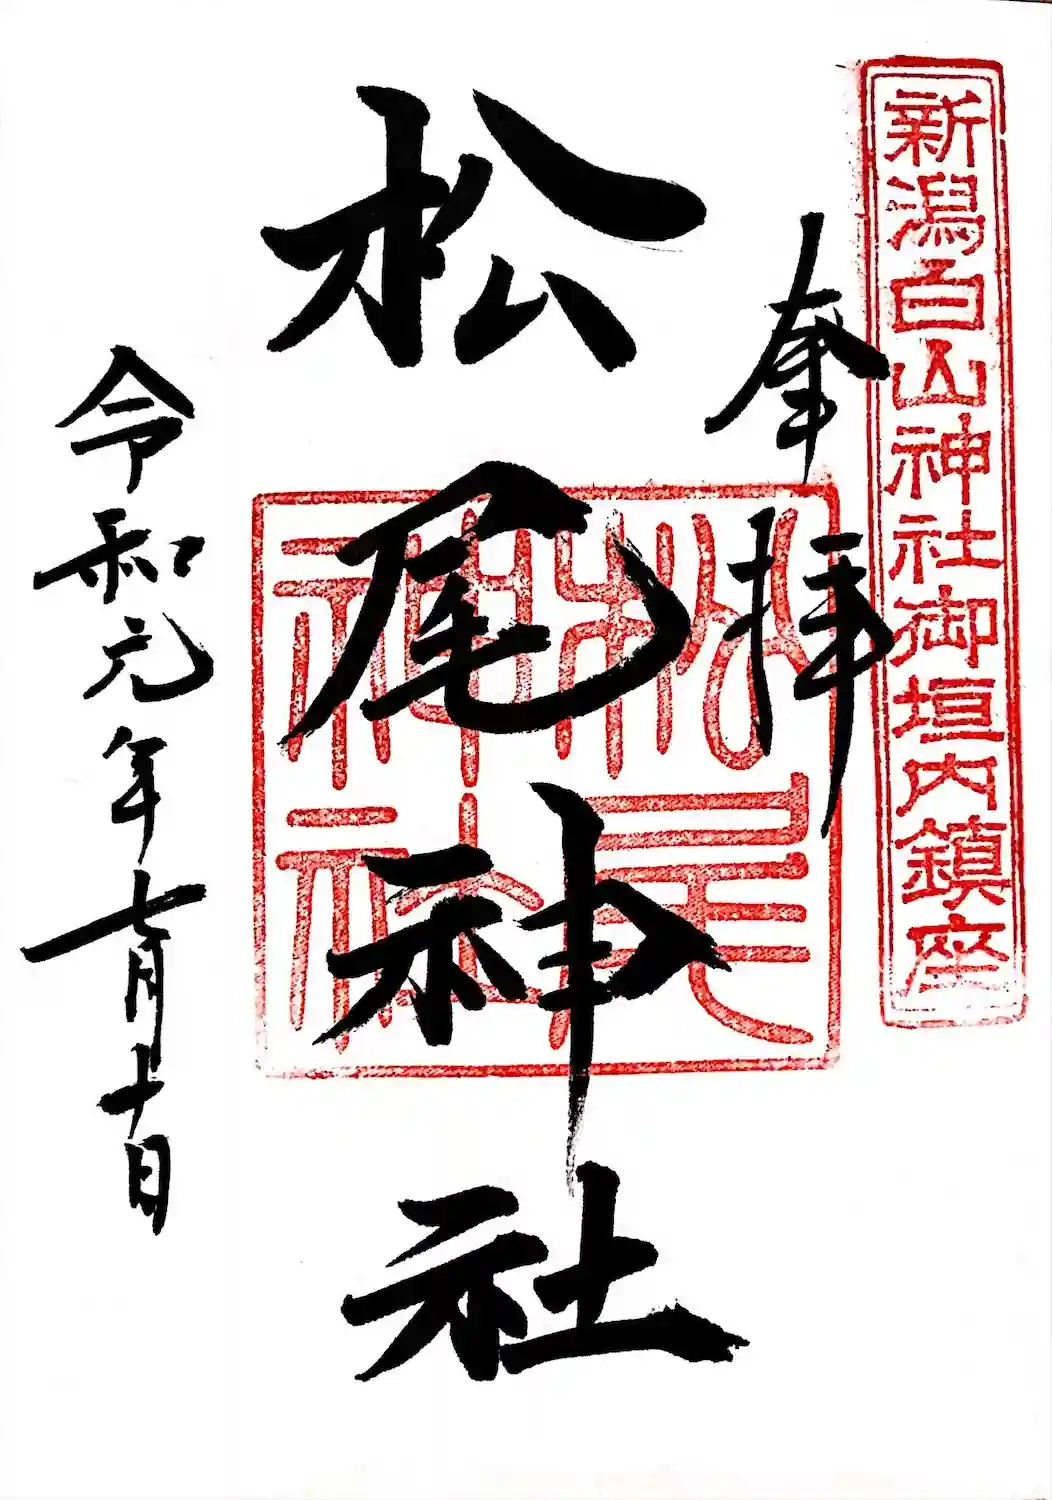 新潟白山神社御垣内鎮座
奉拝
松尾神社
松尾神社
令和元年七月十日